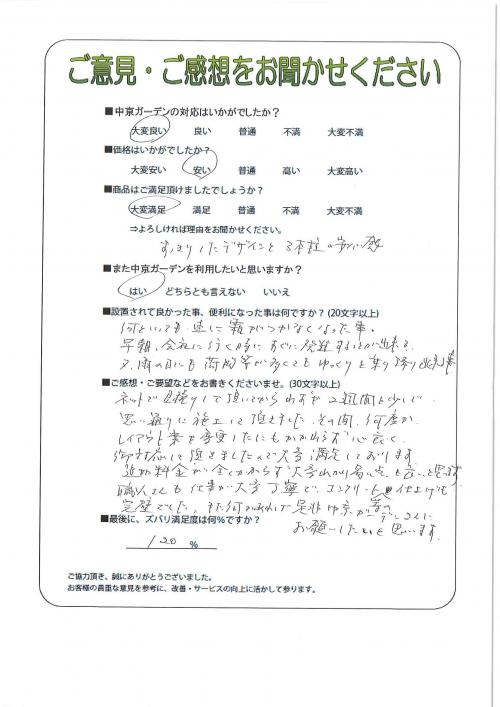 ご意見・ご感想をお聞かせください
■中京ガーデンの対応はいかがでしたか？
大変良い 良い 普通 不満 大変不満
■価格はいかがでしたか？
大変安い 安い 普通 高い 大変高い
■商品はご満足頂けましたでしょうか？
大変満足 満足 普通 不満 大変不満
⇒よろしければ理由をお聞かせください。
すっきりしたデザインと3本柱の安心感
■また中京ガーデンを利用したいと思いますか？
はい どちらとも言えない いいえ
■設置されて良かった事、便利になった事は何ですか？(20文字以上)
何といっても車に霜がつかなくなった事。
早朝、会社に行く時にすぐに発進することが出来る。
又、雨の日にも荷物等が多くてもゆっくりと乗り降り出来る事
■ご感想・ご要望などをお書きくださいませ。(30文字以上)
ネットで見積りして頂いてからわずか2週間と少しで、
思い通りに施工して頂きました。その間、何度か
レイアウト案を変更したにもかかわらず心良く
御対応して頂きましたので大変満足しております。
追加料金が全くかからず大変わかり易い点も良いと思います
職人さんも仕事が大変丁寧で、コンクリート土間仕上げも
完璧でした。また何かあれば是非中京ガーデンさんに
お願いしたいと思います。
■最後に、ズバリ満足度は何%ですか？
120 %
ご協力頂き、誠にありがとうございました。
お客様の貴重な意見を参考に、改善・サービスの向上に活かして参ります。